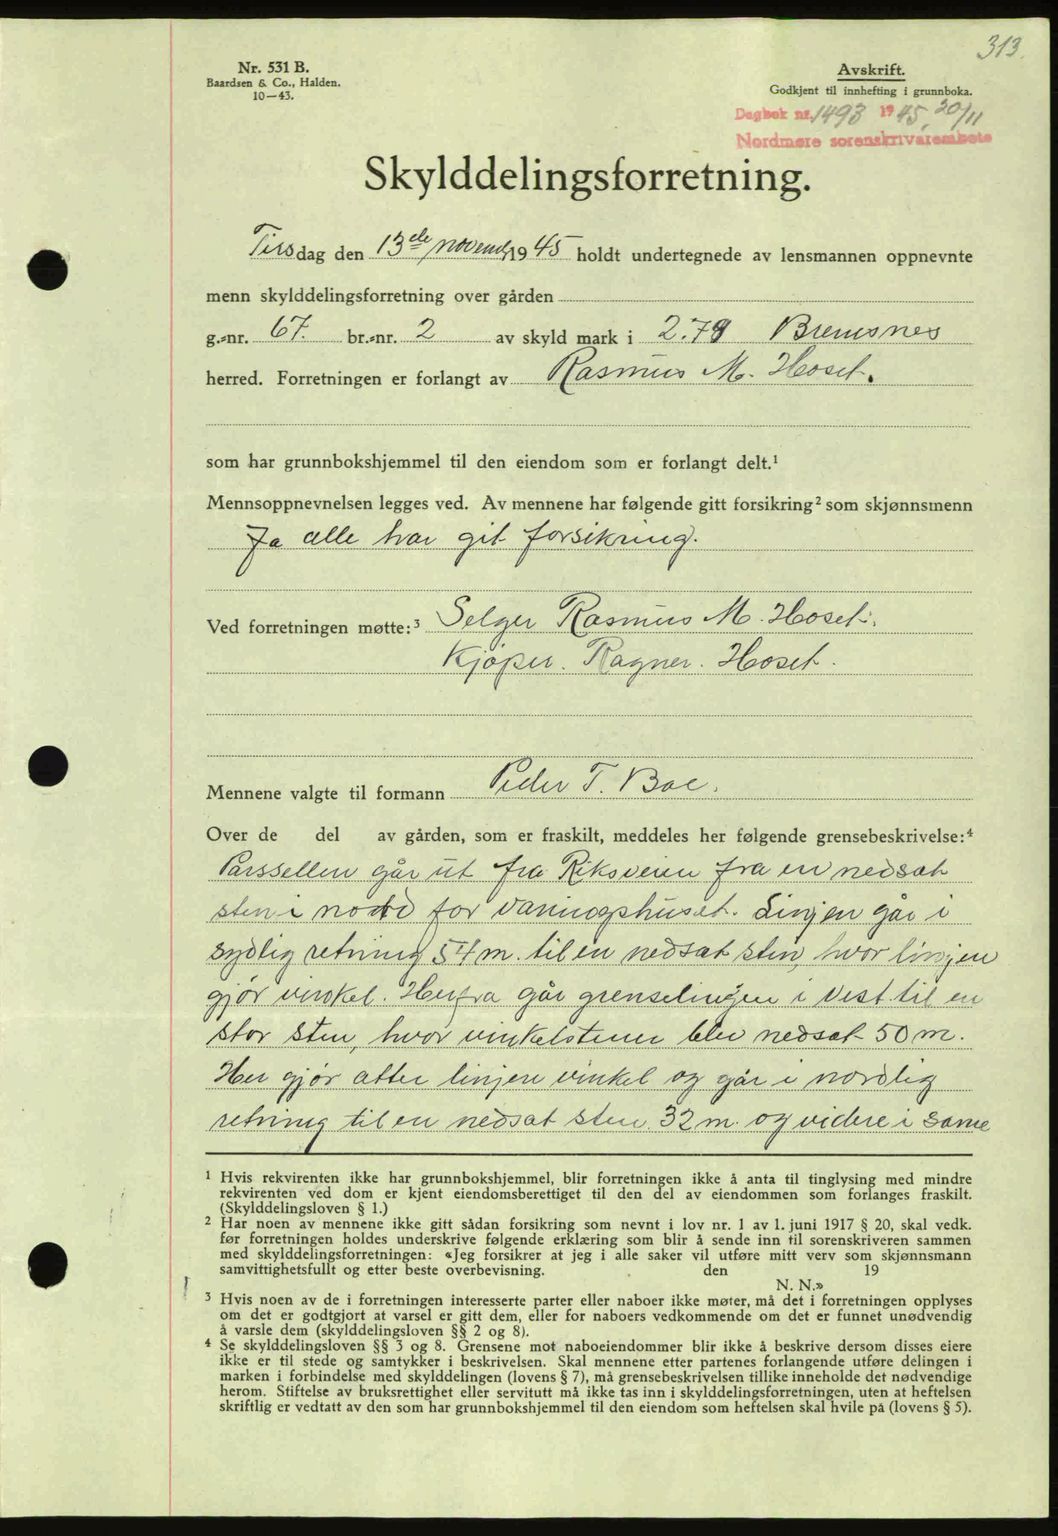 313.
Nr. 531 B.
Baardsen & Co., Halden.
10-43.
Avskrift.
Godkjent til innhefting i grunnboka.
Dagbok nr. 1493 1945, 20/11
Nordmøre sorenskriverembete
Skylddelingsforretning.
Tirsdag den 13de novemb 1945 holdt undertegnede av lensmannen oppnevnte
menn skylddelingsforretning over gården
g.-nr. 67. br.-nr. 2 av skyld mark i 2.78 Bremsnes
herred. Forretningen er forlangt av Rasmus M. Hoset.
som har grunnbokshjemmel til den eiendom som er forlangt delt.¹
Mennsoppnevnelsen legges ved. Av mennene har følgende gitt forsikring² som skjønnsmenn
Ja alle har git forsikring.
Ved forretningen møtte:³ Selger Rasmus M. Hoset.
Kjøper. Ragner. Hoset.
Mennene valgte til formann Peder T. Boe.
Over de del av gården, som er fraskilt, meddeles her følgende grensebeskrivelse:⁴
Parssellen går ut fra Riksveien fra en nedsat
sten i nord for vaaningshuset. Linjen går i
sydlig retning 54 m. til en nedsat sten, hvor linjen
gjør vinkel. Herfra går grenselinjen i Vest til en
stor sten, hvor vinkelstenen blev nedsat 50 m.
Her gjør atter linjen vinkel og går i nordlig
retning til en nedsat sten 32 m. og videre i same
¹ Hvis rekvirenten ikke har grunnbokshjemmel, blir forretningen ikke å anta til tinglysing med mindre
rekvirenten ved dom er kjent eiendomsberettiget til den del av eiendommen som forlanges fraskilt.
(Skylddelingsloven § 1.)
² Har noen av mennene ikke gitt sådan forsikring som nevnt i lov nr. 1 av 1. juni 1917 § 20, skal vedk.
før forretningen holdes underskrive følgende erklæring som blir å sende inn til sorenskriveren sammen
med skylddelingsforretningen: «Jeg forsikrer at jeg i alle saker vil utføre mitt verv som skjønnsmann
samvittighetsfullt og etter beste overbevisning. den 19
N. N.»
³ Hvis noen av de i forretningen interesserte parter eller naboer ikke møter, må det i forretningen opplyses
om det er godtgjort at varsel er gitt dem, eller for naboers vedkommende om det er funnet unødvendig
å varsle dem (skylddelingsloven §§ 2 og 8).
⁴ Se skylddelingsloven §§ 3 og 8. Grensene mot naboeiendommer blir ikke å beskrive dersom disses eiere
ikke er til stede og samtykker i beskrivelsen. Skal mennene etter partenes forlangende utføre delingen i
marken i forbindelse med skylddelingen (lovens § 7), må grensebeskrivelsen tillike inneholde det nødvendige
herom. Stiftelse av bruksrettighet eller servitutt må ikke tas inn i skylddelingsforretningen, uten at heftelsen
skriftlig er vedtatt av den som har grunnbokshjemmel til den eiendom som heftelsen skal hvile på (lovens § 5).